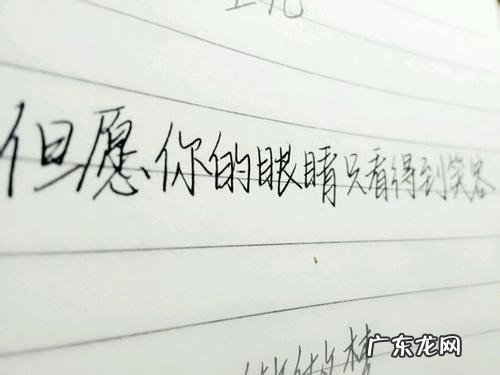 但愿你的眼睛只看得到笑容
广东龙网